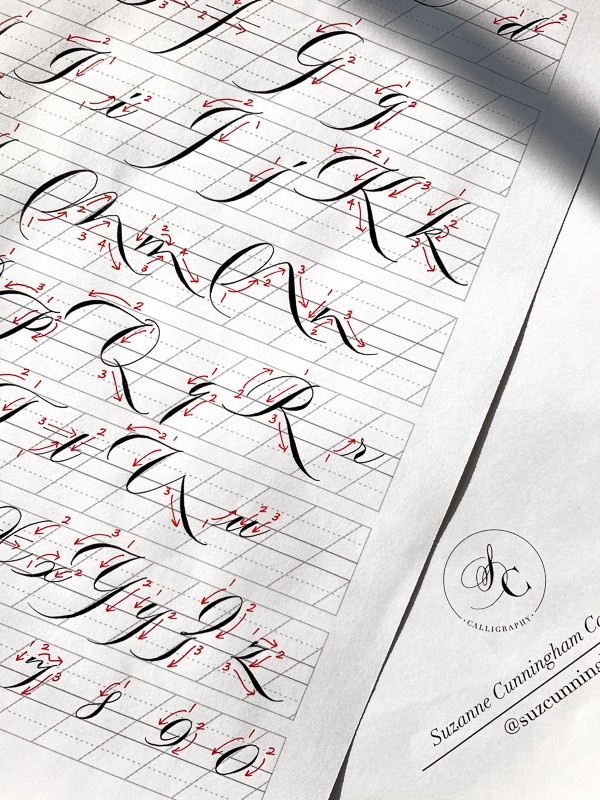 d
f G g
I i J j K k
M m N n
p Q q R r
t U u
x Y y Z z
7 8 9 0
SC
·CALLIGRAPHY·
Suzanne Cunningham
@suzcunning